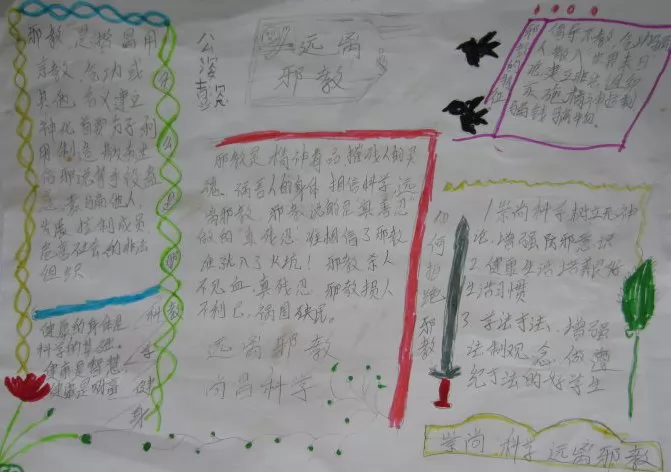 邪教，是指冒用
宗教、气功或
其他名义建立
神化首要分子利
用制造、散布迷
信邪说等手段蛊
惑、蒙骗他人，
发展、控制成员，
危害社会的非法
组织
健康的身体是
科学的基础。
健康是智慧
健康是
远离
邪教
邪教是精神毒品摧残人的灵
魂。祸害人的身体 相信科学，远
离邪教 邪教说的是真善忍
做的真残忍 谁相信了邪教
谁就入了火坑！邪教杀人
不见血，真残忍 邪教损人
不利己，祸国殃民。
远离邪教
向昌科学
骗钱骗物。
如何拒绝邪教
1 崇尚科学树立无神
论，增强防邪意识
2 健康生活，培养良好
生活习惯
3 学法守法、增强
法制观念，做遵
纪守法的好学生
学尚 科学 远离邪教